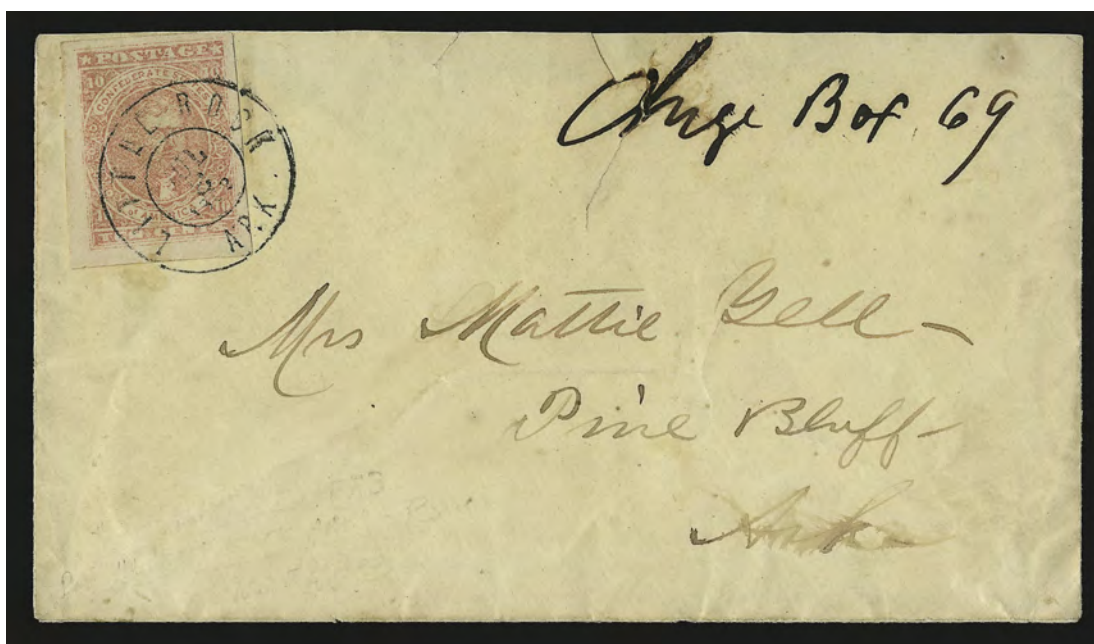 ★ POSTAGE ★
10 10
CONFEDERATE
LITTLE ROCK
ARK.
Chuge Box 69
Mrs Mattie Yell –
Pine Bluff –
Ark